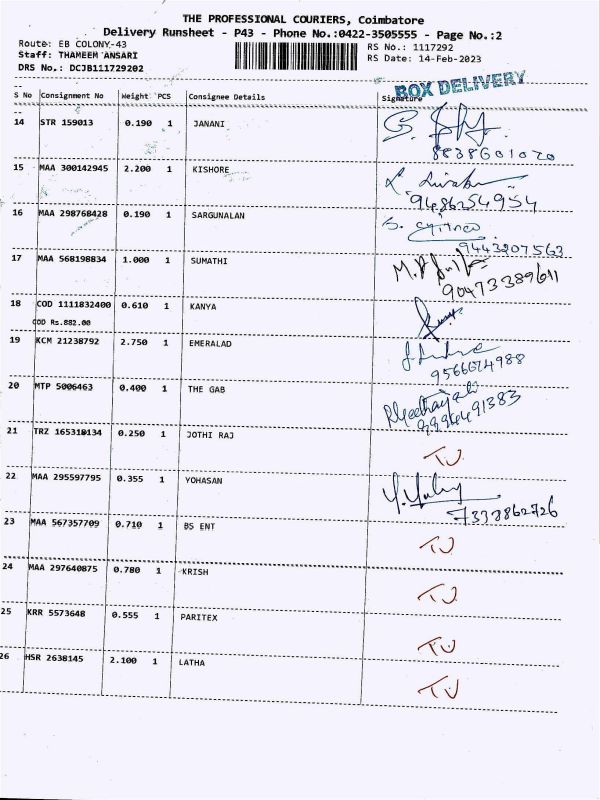 THE PROFESSIONAL COURIERS, Coimbatore
Delivery Runsheet - P43 - Phone No.:0422-3505555 - Page No.:2
Route: EB COLONY-43
Staff: THAMEEM ANSARI
DRS No.: DCJB111729202
RS No.: 1117292
RS Date: 14-Feb-2023
BOX DELIVERY
S No Consignment No Weight PCS Consignee Details Signature
14 STR 159013 0.190 1 JANANI
8838601020
15 MAA 300142945 2.200 1 KISHORE
9486254954
16 MAA 298768428 0.190 1 SARGUNALAN
9443207563
17 MAA 568198834 1.000 1 SUMATHI
90473389611
18 COD 1111832400 0.610 1 KANYA
COD Rs.882.00
19 KCM 21238792 2.750 1 EMERALAD
9566674988
20 MTP 5006463 0.400 1 THE GAB
21 TRZ 165318134 0.250 1 JOTHI RAJ TJ
22 MAA 295597795 0.355 1 YOHASAN
7338862726
23 MAA 567357709 0.710 1 BS ENT TJ
24 MAA 297640875 0.780 1 KRISH TJ
25 KRR 5573648 0.555 1 PARITEX TJ
26 HSR 2638145 2.100 1 LATHA TJ